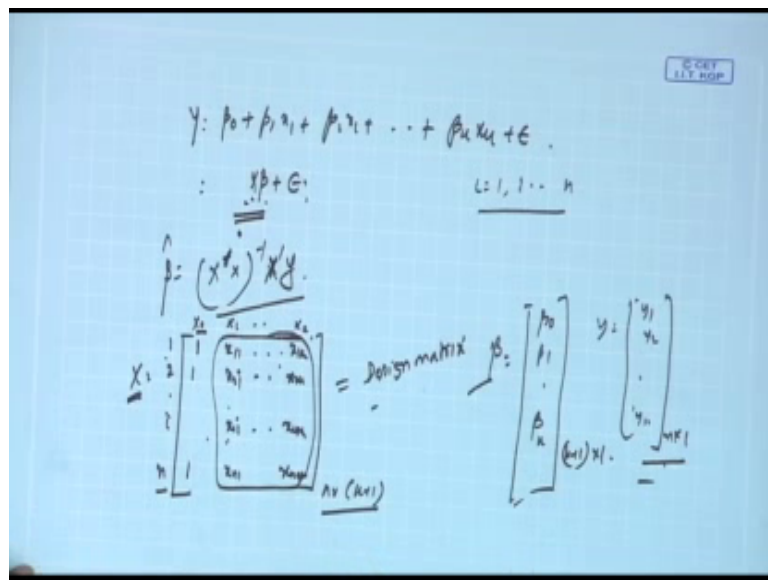 © CET
I.I.T. KGP
y: β0 + β1 x1 + β2 x2 + ·· + βk xk + ϵ.
: Xβ + ϵ: i=1, 2 ·· n
β̂: (X'X)⁻¹ X'y.
x0 x1 ·· xk
X: 1 2 : i n [ 1 x11 ... x1k
1 x21 ·· x2k
xi1 ·· xik
1 xn1 xnk ] n× (k+1) = Design matrix
β: [ β0 β1 · βk ] (k+1)×1.
y: [ y1 y2 · yn ] n×1